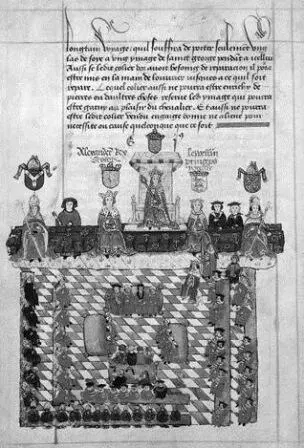 longtain voyage, quil souffira de porter seulement ung
las de soye a ung ymage de saint george pendāt a icelluy
Aussi se ledit colier avoit besoing de reparacion il pora
estre mis en la main de louvrier jusques a ce quil soit
repare. Lequel colier aussi ne pourra estre enrichy de
pierres ou daultres choses reserve led' ymage qui pourra
estre garny au plaisir du chevalier. Et aussi ne pourra
estre ledit colier vendu engage donne ne aliene pour
necessite ou cause quelconque que ce soit
Alexander
princeps